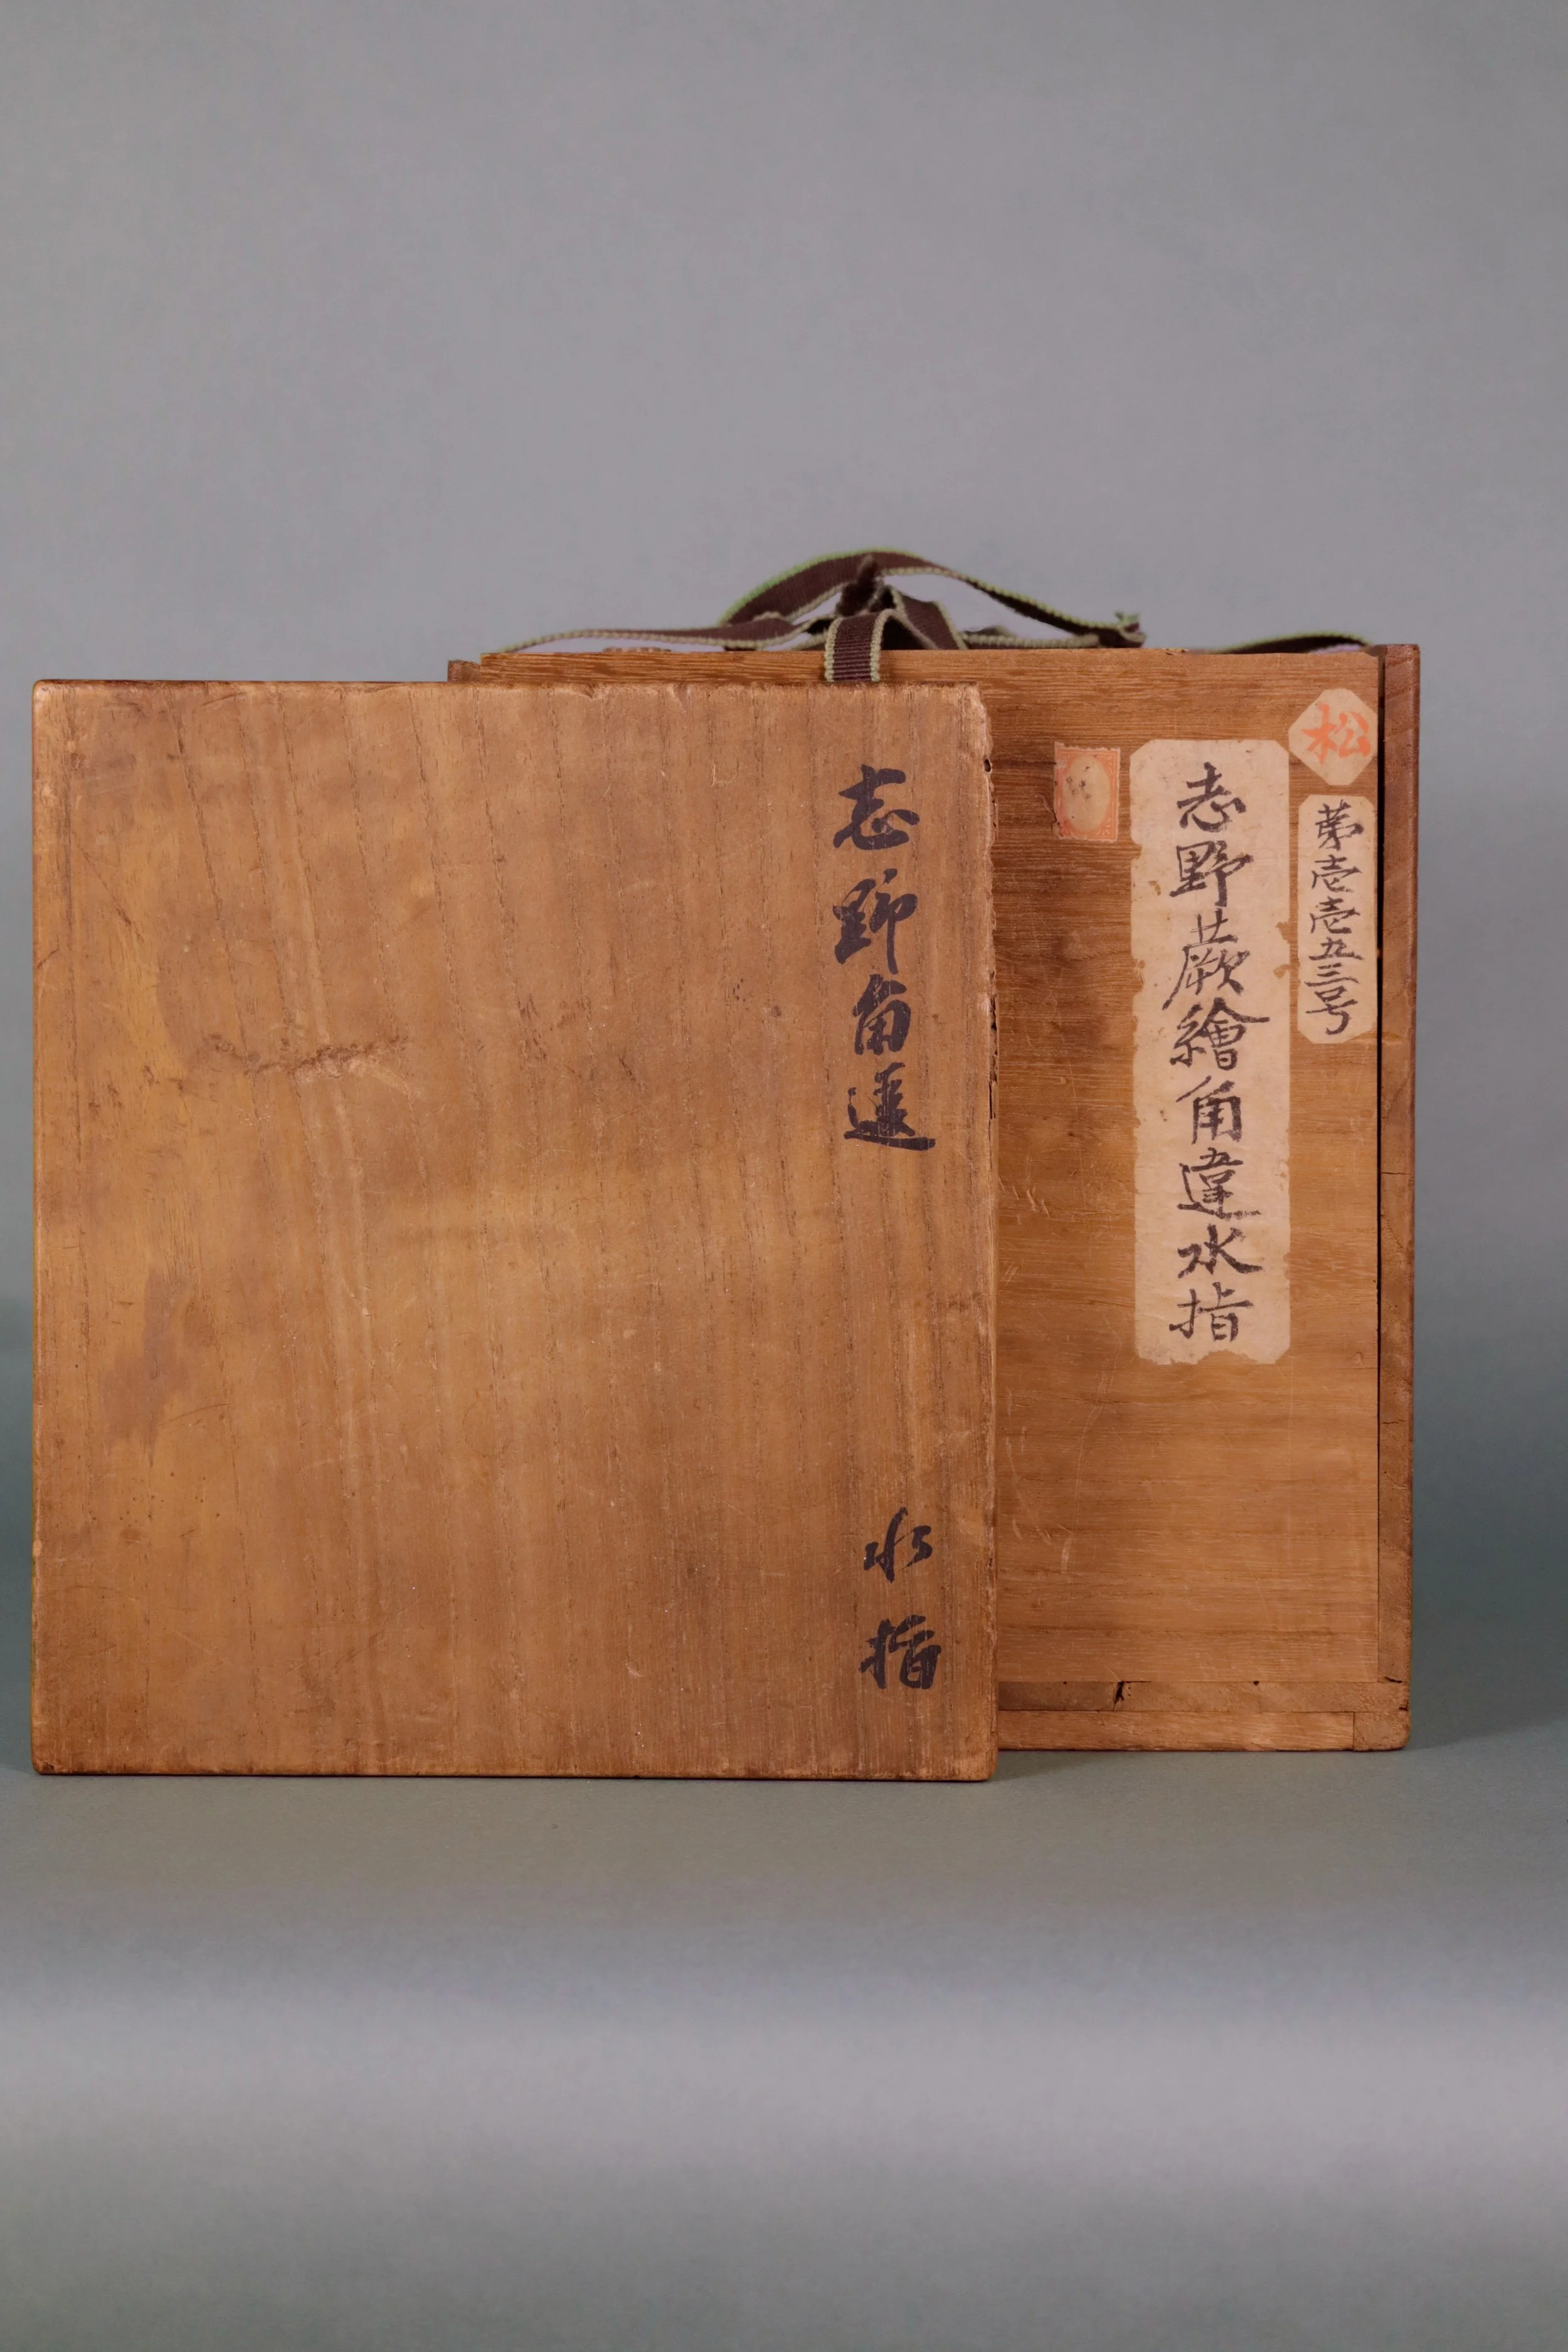 松
第壱壱五三号
志野蕨繪角違水指
志野角違
水指